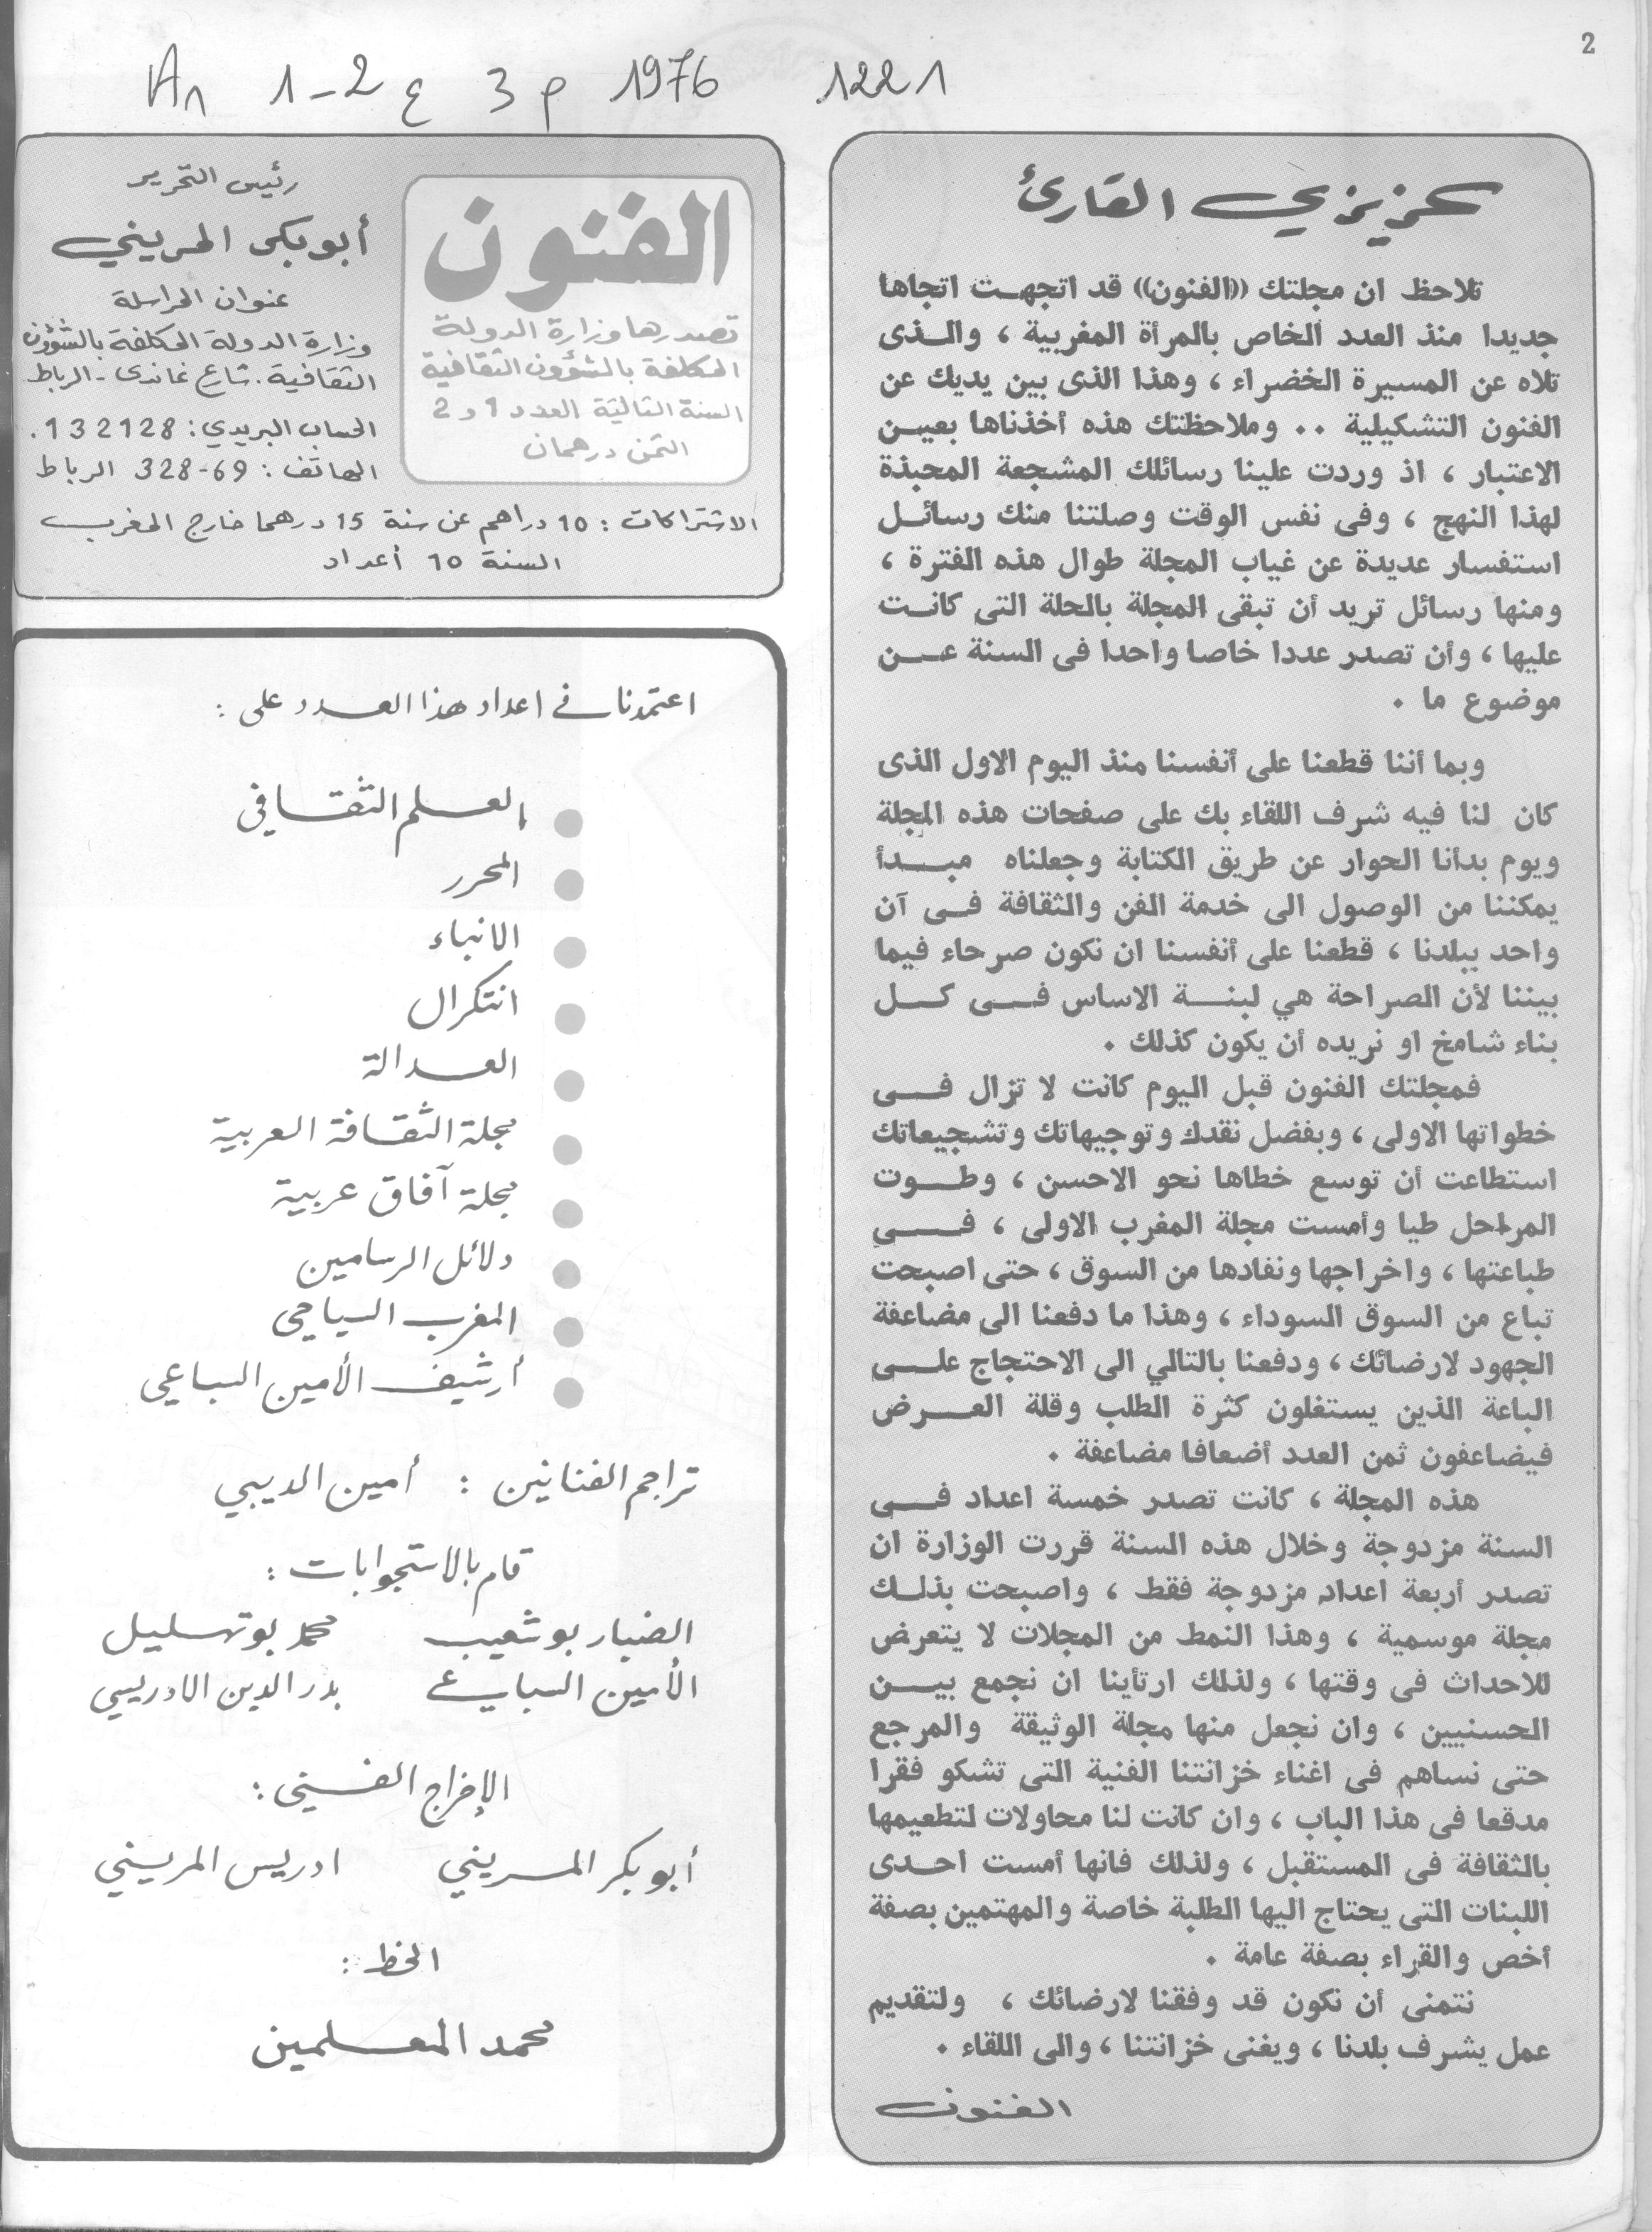 2
An 1-2 ع 3 م 1976 1221
عزيزي القارئ
تلاحظ ان مجلتك ((الفنون)) قد اتجهت اتجاها
جديدا منذ العدد الخاص بالمرأة المغربية ، والذى
تلاه عن المسيرة الخضراء ، وهذا الذى بين يديك عن
الفنون التشكيلية .. وملاحظتك هذه أخذناها بعين
الاعتبار ، اذ وردت علينا رسائلك المشجعة المحبذة
لهذا النهج ، وفى نفس الوقت وصلتنا منك رسائل
استفسار عديدة عن غياب المجلة طوال هذه الفترة ،
ومنها رسائل تريد أن تبقى المجلة بالحلة التى كانت
عليها ، وأن تصدر عددا خاصا واحدا فى السنة عن
موضوع ما .
وبما أننا قطعنا على أنفسنا منذ اليوم الاول الذى
كان لنا فيه شرف اللقاء بك على صفحات هذه المجلة
ويوم بدأنا الحوار عن طريق الكتابة وجعلناه مبدأ
يمكننا من الوصول الى خدمة الفن والثقافة فى آن
واحد ببلدنا ، قطعنا على أنفسنا ان نكون صرحاء فيما
بيننا لأن الصراحة هي لبنة الاساس فى كل
بناء شامخ او نريده أن يكون كذلك .
فمجلتك الفنون قبل اليوم كانت لا تزال فى
خطواتها الاولى ، وبفضل نقدك وتوجيهاتك وتشجيعاتك
استطاعت أن توسع خطاها نحو الاحسن ، وطوت
المراحل طيا وأمست مجلة المغرب الاولى ، في
طباعتها ، واخراجها ونفادها من السوق ، حتى اصبحت
تباع من السوق السوداء ، وهذا ما دفعنا الى مضاعفة
الجهود لارضائك ، ودفعنا بالتالي الى الاحتجاج على
الباعة الذين يستغلون كثرة الطلب وقلة العرض
فيضاعفون ثمن العدد أضعافا مضاعفة .
هذه المجلة ، كانت تصدر خمسة اعداد فى
السنة مزدوجة وخلال هذه السنة قررت الوزارة ان
تصدر أربعة اعداد مزدوجة فقط ، واصبحت بذلك
مجلة موسمية ، وهذا النمط من المجلات لا يتعرض
للاحداث فى وقتها ، ولذلك ارتأينا ان نجمع بين
الحسنيين ، وان نجعل منها مجلة الوثيقة والمرجع
حتى نساهم فى اغناء خزانتنا الفنية التى تشكو فقرا
مدقعا فى هذا الباب ، وان كانت لنا محاولات لتطعيمها
بالثقافة فى المستقبل ، ولذلك فانها أمست احدى
اللبنات التى يحتاج اليها الطلبة خاصة والمهتمين بصفة
أخص والقراء بصفة عامة .
نتمنى أن نكون قد وفقنا لارضائك ، ولتقديم
عمل يشرف بلدنا ، ويغنى خزانتنا ، والى اللقاء .
الفنون
الفنون
تصدرها وزارة الدولة
المكلفة بالشؤون الثقافية
السنة الثالثة العدد 1 و 2
الثمن درهمان
رئيس التحرير
أبو بكر المريني
عنوان المراسلة
وزارة الدولة المكلفة بالشؤون
الثقافية . شارع غاندى - الرباط
الحساب البريدي : 132128 .
الهاتف : 69-328 الرباط
الاشتراكات : 10 دراهم عن سنة 15 درهما خارج المغرب
السنة 10 أعداد
اعتمدنا في اعداد هذا العدد على :
العلم الثقافي
المحرر
الانباء
انتكرال
العدالة
مجلة الثقافة العربية
مجلة آفاق عربية
دلائل الرسامين
المغرب السياحي
أرشيف الأمين السباعي
تراجم الفنانين : أمين الديبي
قام بالاستجوابات :
الضبار بوشعيب محمد بوتهليل
الأمين السباعي بدر الدين الادريسي
الإخراج الفني :
أبو بكر المريني ادريس المريني
الخط :
محمد المعلمين